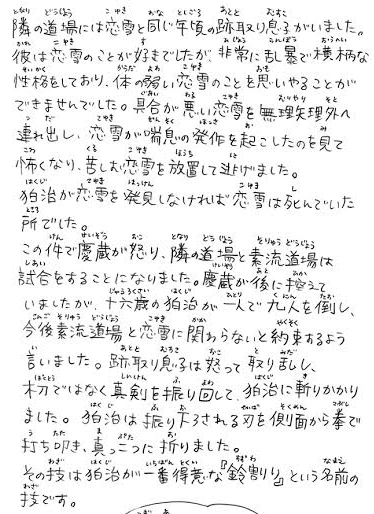 隣の道場には恋雪と同じ年頃の跡取り息子がいました。
彼は恋雪のことが好きでしたが、非常に乱暴で横柄な
性格をしており、体の弱い恋雪のことを思いやることが
できませんでした。具合が悪い恋雪を無理矢理外へ
連れ出し、恋雪が喘息の発作を起こしたのを見て
怖くなり、苦しむ恋雪を放置して逃げました。
狛治が恋雪を発見しなければ恋雪は死んでいた
所でした。
この件で慶蔵が怒り、隣の道場と素流道場は
試合をすることになりました。慶蔵が後に控えて
いましたが、十六歳の狛治が一人で九人を倒し、
今後素流道場と恋雪に関わらないと約束するよう
言いました。跡取り息子は怒って取り乱し、
木刀ではなく真剣を振り回して、狛治に斬りかかり
ました。狛治は振り下ろされる刃を側面から拳で
打ち叩き、真っ二つに折りました。
その技は狛治が一番得意な『鈴割り』という名前の
技です。